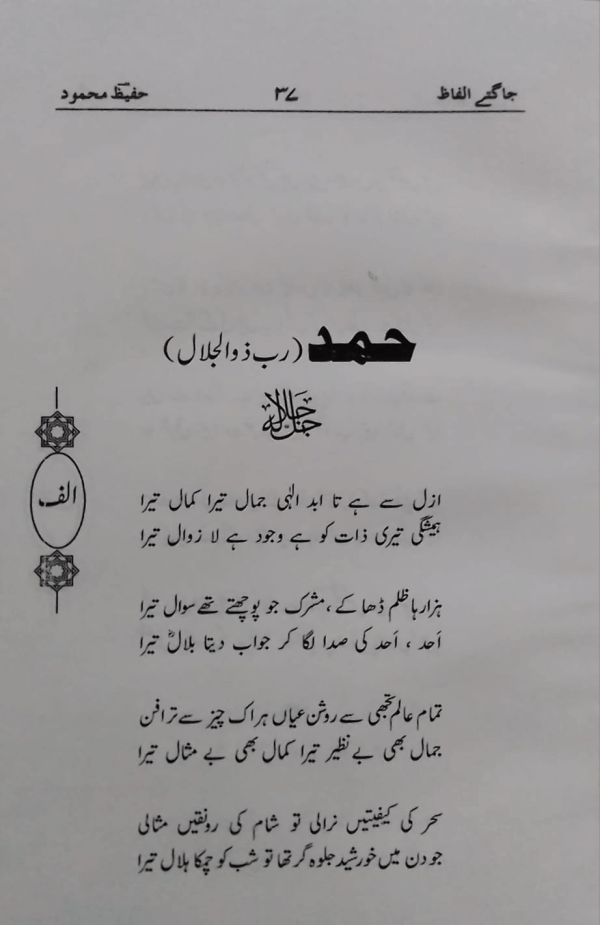 جاگتے الفاظ ۳۷ حفیظ محمود
حمد (رب ذوالجلال)
جل جلالہ
الف
ازل سے ہے تا ابد الٰہی جمال تیرا کمال تیرا
ہمیشگی تیری ذات کو ہے وجود ہے لا زوال تیرا
ہزار ہا ظلم ڈھا کے، مشرک جو پوچھتے تھے سوال تیرا
اَحد ، اَحد کی صدا لگا کر جواب دیتا بلالؓ تیرا
تمام عالم تجھی سے روشن عیاں ہر اک چیز سے ترا فن
جمال بھی بے نظیر تیرا کمال بھی بے مثال تیرا
سحر کی کیفیتیں نرالی تو شام کی رونقیں مثالی
جو دن میں خورشید جلوہ گر تھا تو شب کو چمکا ہلال تیرا